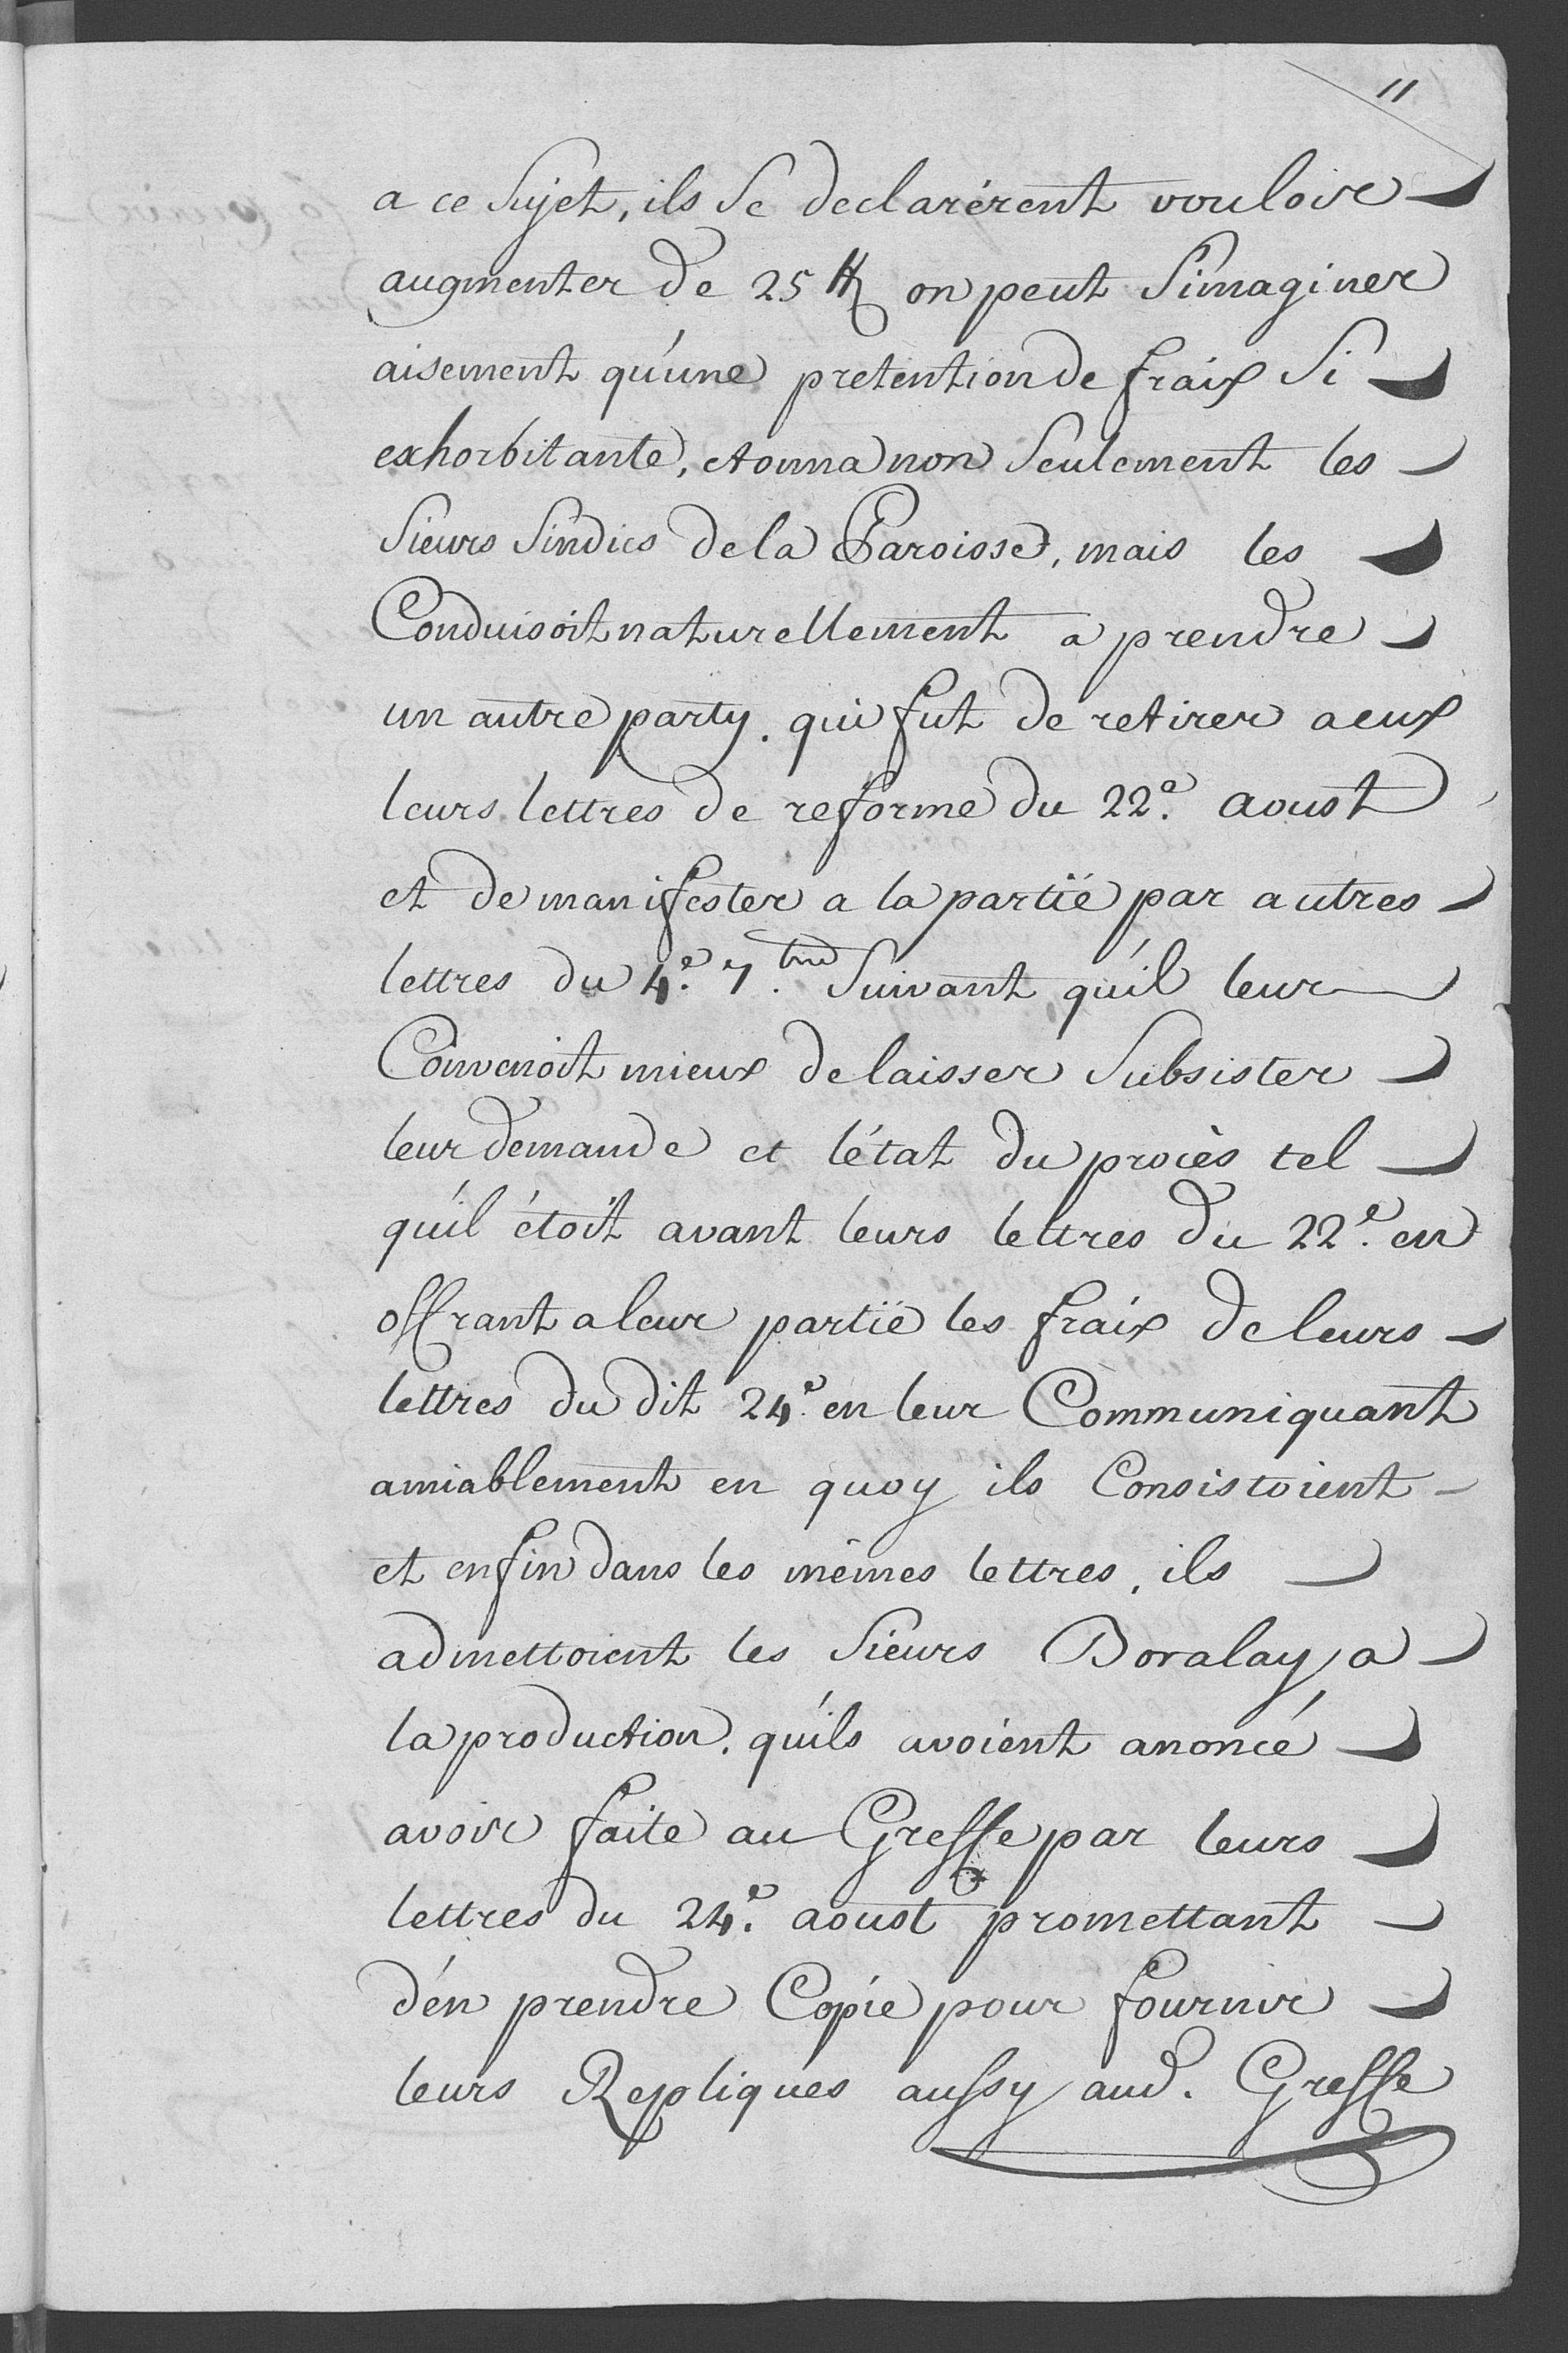 11
a ce Sujet, ils Se declarérent vouloir
augmenter de 25 ₶ on peut Simaginer
aisement qu'une pretention de fraix Si
exhorbitante, etonna non Seulement les
Sieurs Sindics de la Paroisse, mais les
Conduisoit naturellement a prendre
un autre party. qui fut de retirer a eux
leurs lettres de reforme du 22.e aoust
et de manifester a la partië par autres
lettres du 4.e 7.bre Suivant qu'il leur
Convenoit mieux de laisser Subsister
leur demande et l'état du procès tel
qu'il étoit avant leurs lettres du 22.e en
offrant a leur partië les fraix de leurs
lettres du dit 24.e en leur Communiquant
amiablement en quoy ils Consistoient
et enfin dans les mêmes lettres, ils
admettoient les Sieurs Doralay a
la production. qu'ils avoient anoncé
avoir faite au Greffe par leurs
lettres du 24.e aoust promettant
d'en prendre Copie pour fournir
leurs Repliques aussy aud. Greffe